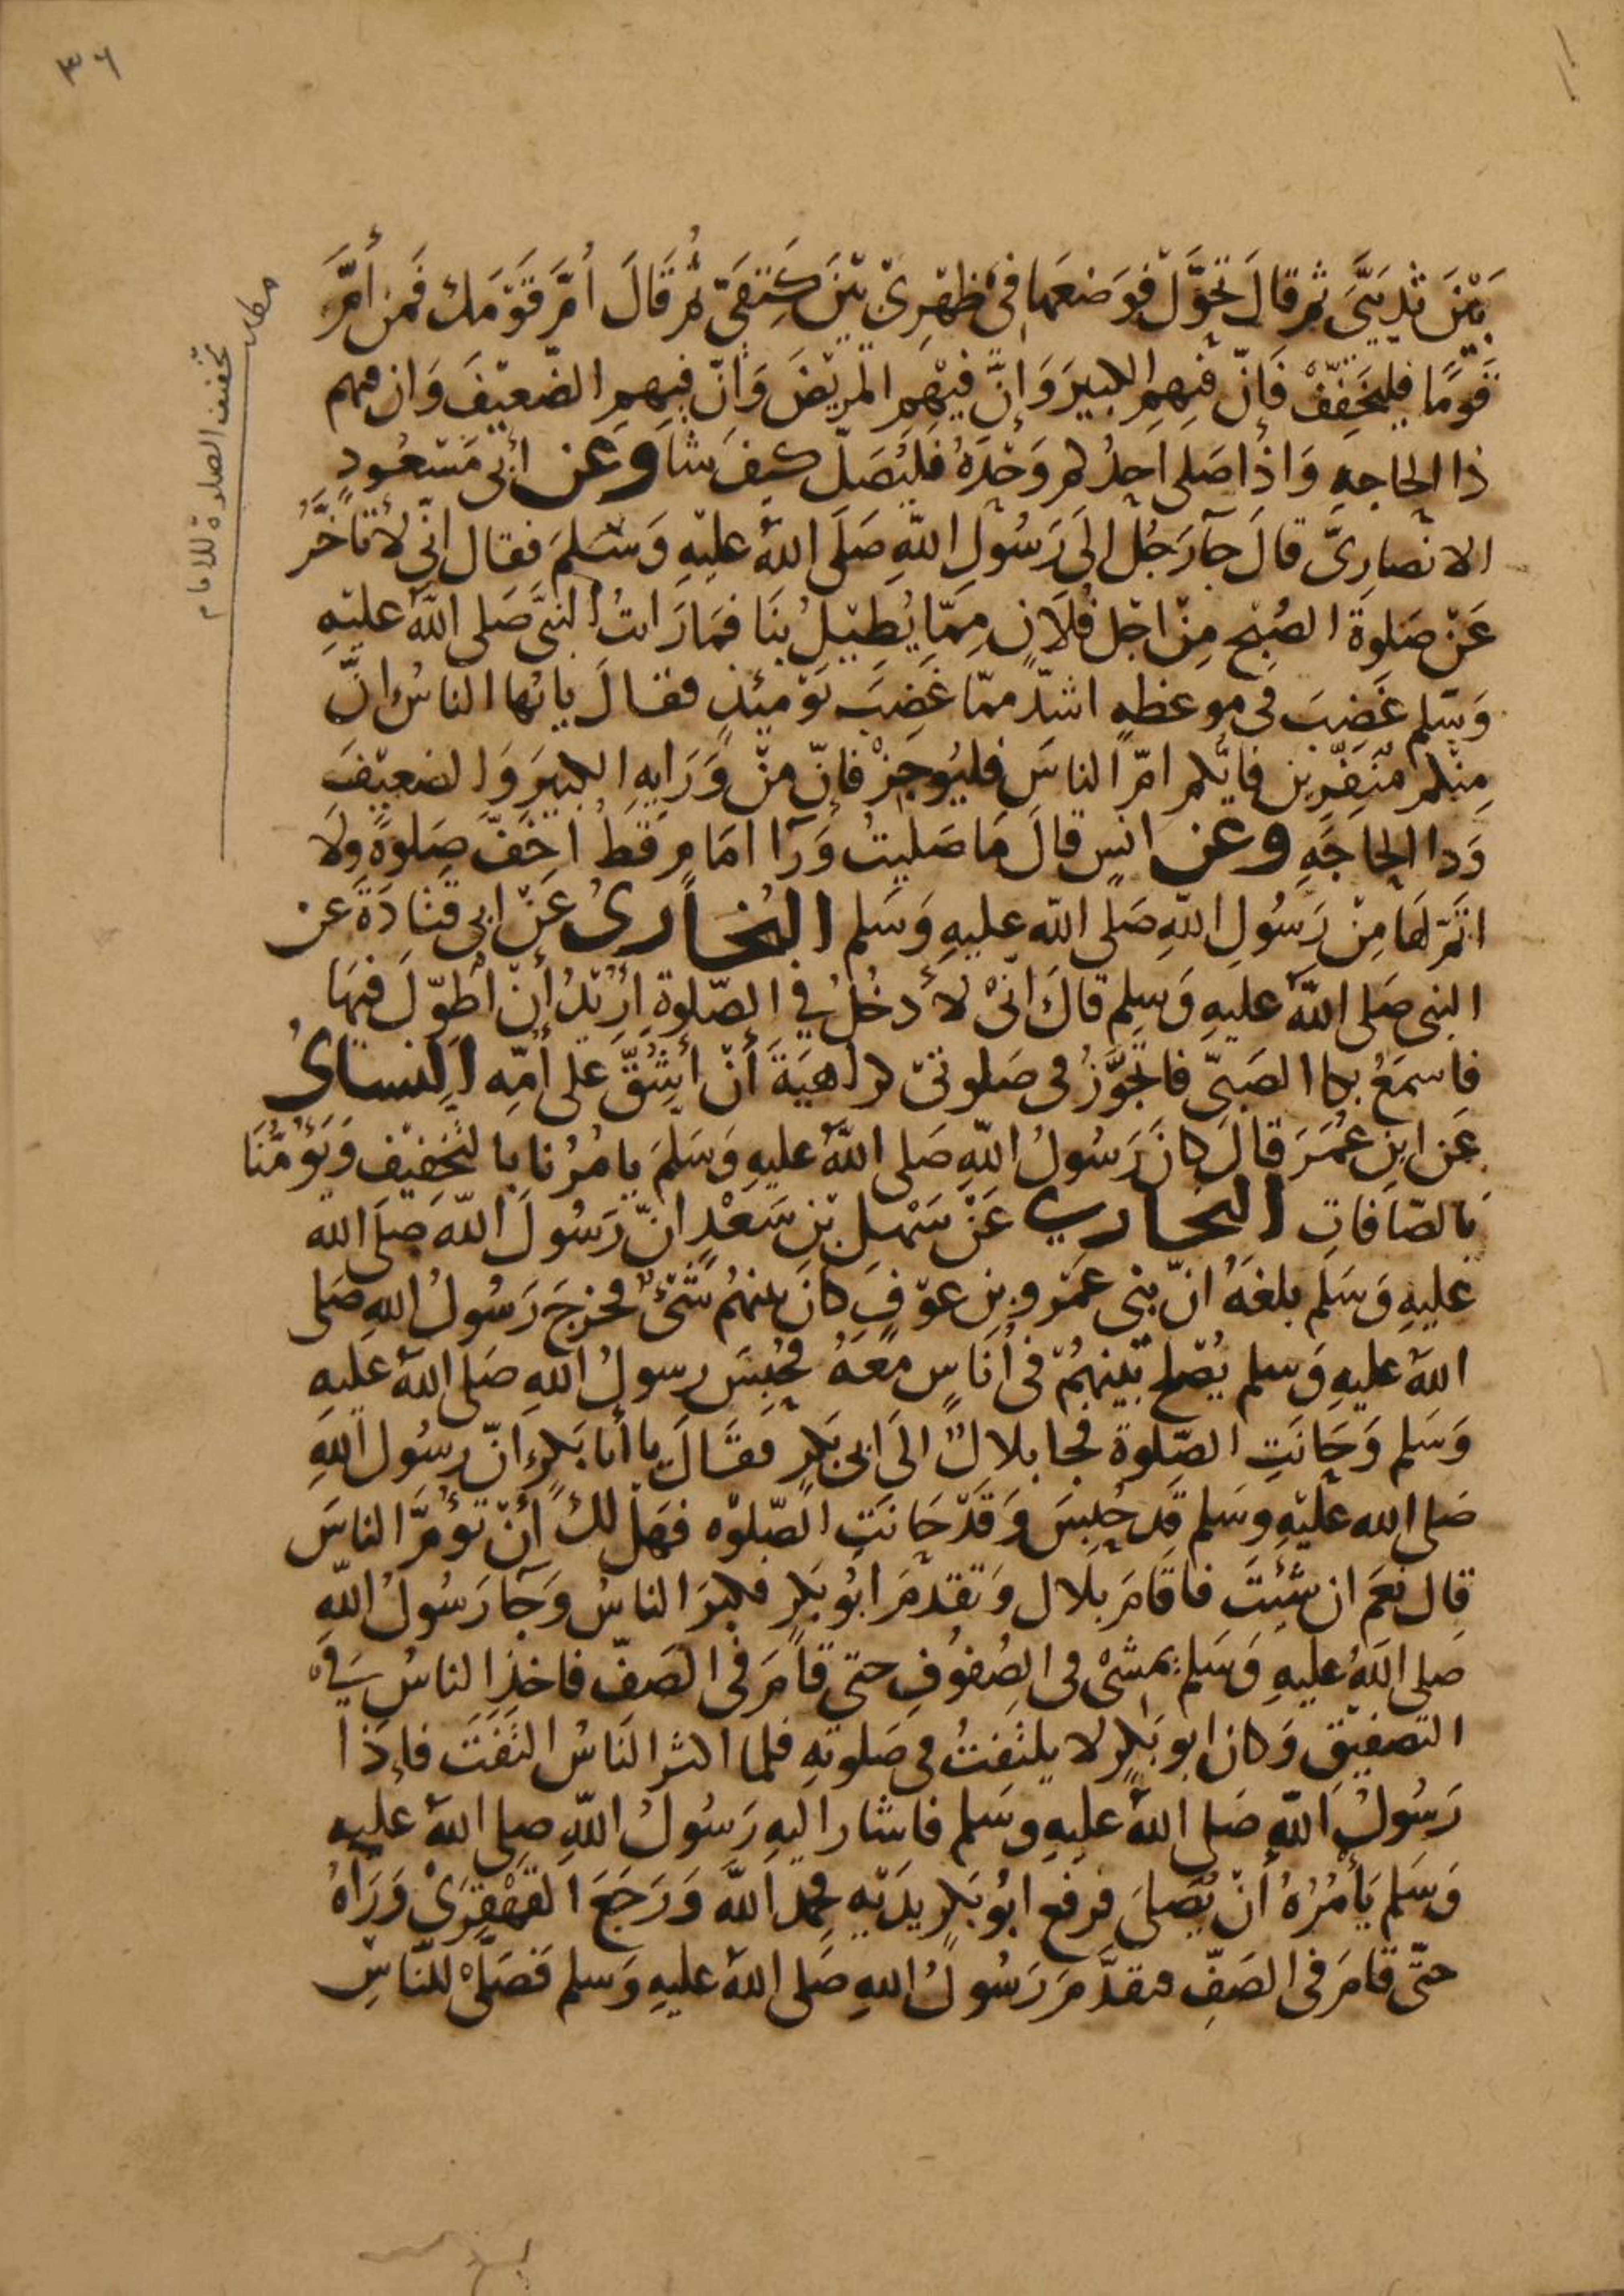 ٣٦
بَيْنَ ثَدْيَيَّ ثم قالَ تَحَوَّلْ فوَضعَها في ظهْرِيْ بَيْنَ كَتِفَيَّ ثُم قَالَ اُمَّ قَوْمَكَ فَمن أَمَّ
قَوْمًا فليُخَفِّفْ فَإنّ فيهِم الكبيرَ وَإنَّ فيْهِم المَريْضَ وَأنّ فيهِم الضّعيْفَ وَان فيهم
ذا الحاجهِ وَاذا صَلى احدُكم وَحْدَهُ فليُصَلّ كيفَ شَا وعن أبي مَسْعُودٍ
الانصارِىّ قالَ جآ رَجُل الىَ رَسُولِ اللّهِ صَلَى اللهُ عليْهِ وَسَلمَ فقال انّي لأتأخّرُ
عَنْ صَلوةِ الصُبْحِ مِنْ اجْل فُلَانٍ مِمّا يُطِيْلُ بنَا فمَا رَايتُ النبيَّ صَلى اللهُ عليْهِ
وَسَلم غَضِبَ في موعظهٍ اشدّ ممّا غَضِبَ يَوْميئذٍ فقالَ يايُها الناسُ انَّ
مِنْكم مُنَفِّرين فايّكم امّ الناسَ فليُوجِزْ فإنّ منْ وَرَايهِ الكبيرَ وَالضعيْفَ
وَذا الحاجَهِ وعن انسٍ قالَ مَا صَليتُ وَرآ امَامٍ قَطُ اخَفّ صَلوةً ولَا
اتَمّ لهَا مِنْ رَسُولِ اللهِ صَلى الله عليهِ وَسَلم البُخَاريُ عَنْ ابي قتادَةَ عن
النبي صَلى اللهُ عليهِ وَسَلم قالَ انّيْ لأَدخُلُ في الصّلوةِ أُرِيْدُ أَنْ أُطوِّلَ فيهَا
فاسمَعُ بكا الصَبيّ فاتجوَّزُ في صَلوتيْ كراهيَةَ أَنْ أَشُقَّ عَلى أُمّهِ النساىُ
عَن ابنِ عُمَرَ قالَ كانَ رَسُولُ اللهِ صَلى اللهُ عليهِ وَسَلمَ يامُرُنا بالتخفيْف وَيَؤُمُّنَا
بالصّافاتِ البُخاري عَنْ سَهْل بْنِ سَعْدٍ انّ رَسُولَ اللهِ صَلَى الله
عليهِ وَسَلم بلغَهُ انّ بني عَمْرو بن عوْفٍ كانَ بينهُم شَيْءٌ فخرَجَ رَسُولُ اللهِ صَلى
اللهُ عليهِ وَسلم يُصْلح بَيْنهُمْ في أُنَاسٍ مَعَهُ فحُبِسَ رسولُ اللهِ صَلى اللهُ عليهِ
وَسَلم وَحَانَتِ الصّلوة فجا بلالٌ الىَ ابي بَكرٍ فقَالَ يا أبَا بَكرٍ انّ رسُول اللهِ
صَلى الله عليْهِ وسَلم قد حُبِسَ وَقَدْ حَانَتِ الصّلوْه فهَل لكَ أَنْ تَؤُمَّ الناسَ
قال نَعَم ان شِئْتَ فاقامَ بلال وَتقدّمَ ابُو بَكرٍ فكبرَ الناسُ وَجَآ رَسُولُ اللهِ
صَلى اللهُ عليهِ وَسَلم يمشىْ في الصُفُوفِ حتى قامَ في الصَفّ فاخذَ الناسُ في
التصفيْق وَكانَ ابو بَكرٍ لا يلتفتُ في صَلوتهِ فلما اكثر الناسُ التفَتَ فاِذا
رَسُولُ اللهِ صَلى اللهُ عليهِ وسَلم فاشَار اليهِ رَسُولُ اللهِ صلى اللهُ عليهِ
وَسَلم يَأمُرُهُ أَنْ يُصَليَ فرفع ابُو بَكرٍ يدَيْهِ فحَمدَ اللهَ وَرَجَعَ القهْقرَىْ وَرَآهُ
حتّى قامَ في الصَفِّ فتقدَّمَ رَسُولُ اللهِ صَلى اللهُ عليهِ وَسلم فَصَلَّى للنّاسِ
مطلب
تخفيف الصلوة للامام